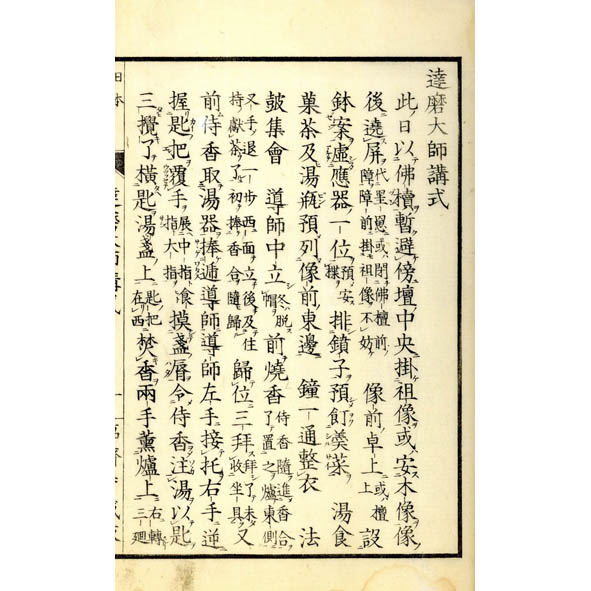 達磨大師講式
此日以佛櫝暫避傍壇中央掛祖像或安木像像
後遶屏代障或閉佛壇前障前掛祖像不妨像前卓上或壇上設
鉢案虛應器一位預安排鐼子預飣羹菜湯食
菓茶及湯瓶預列像前東邊鐘一通整衣法
皷集會導師中立冬脱帽前燒香侍香隨進香合了置之爐東側
叉手退一步西面立後及住持獻茶了初捧香合隨歸歸位三拜拜了未收坐具又
前侍香取湯器捧遞導師導師左手接托右手逆
握匙把覆手展中指食指大指摸盞脣令侍香注湯以匙
三攪了橫匙湯盞上匙把在西焚香兩手薰爐上右轉三廻